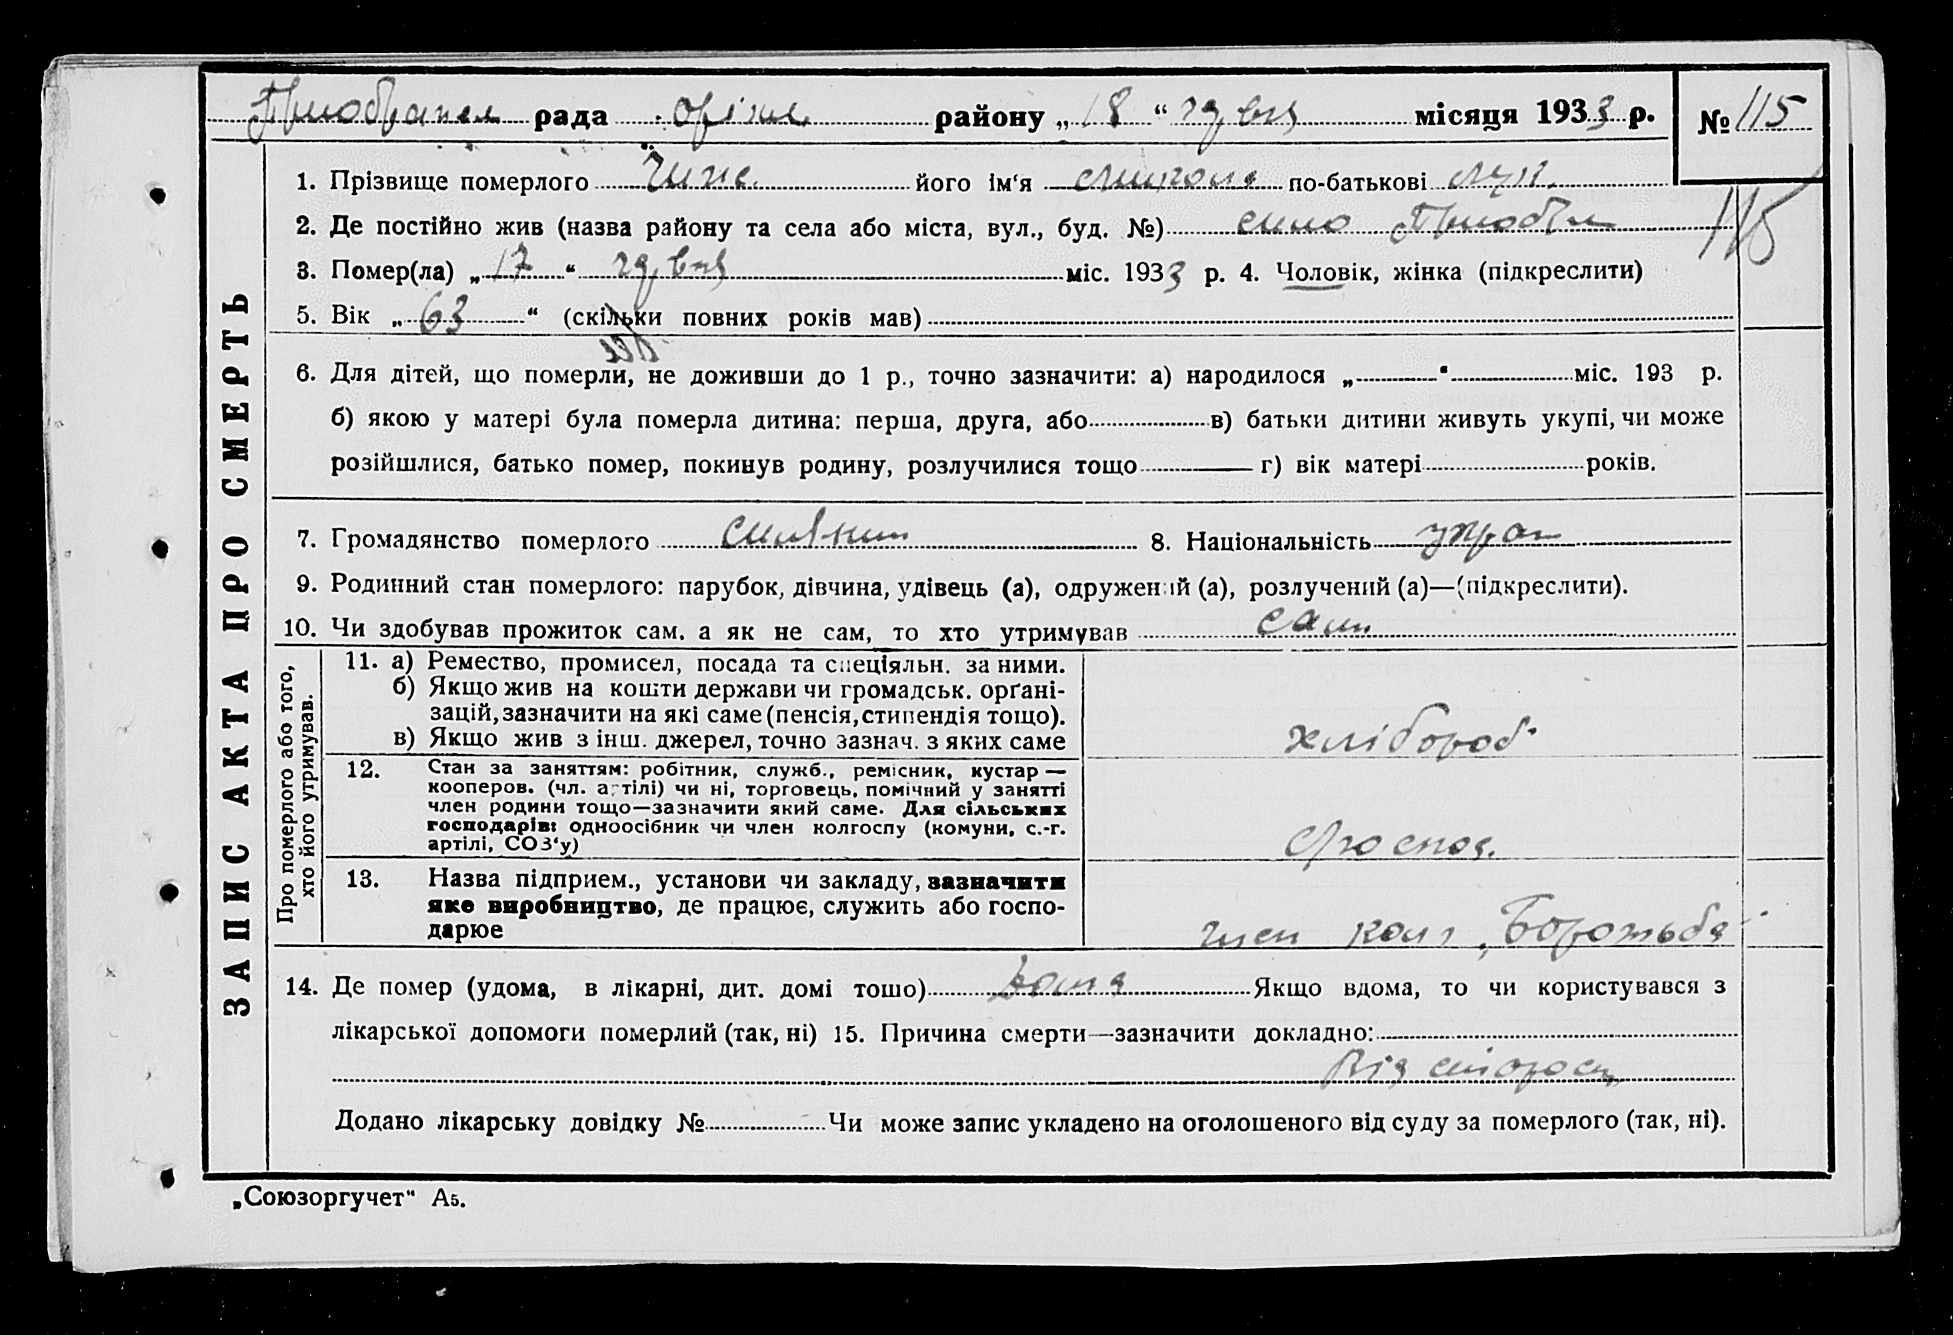 рада оріх. району „18“ червня місяця 1933 р. № 115
1. Прізвище померлого його ім‘я Микола по-батькові
115
2. Де постійно жив (назва району та села або міста, вул., буд. №) село
3. Помер(ла) „17“ червня міс. 1933 р. 4. Чоловік, жінка (підкреслити)
5. Вік „63“ (скільки повних років мав)
6. Для дітей, що померли, не доживши до 1 р., точно зазначити: а) народилося „ “ міс. 193 р.
б) якою у матері була померла дитина: перша, друга, або в) батьки дитини живуть укупі, чи може
розійшлися, батько помер, покинув родину, розлучилися тощо г) вік матері років.
7. Громадянство померлого селянин 8. Національність укра
9. Родинний стан померлого: парубок, дівчина, удівець (а), одружений (а), розлучений (а)—(підкреслити).
10. Чи здобував прожиток сам, а як не сам, то хто утримував сам
Про померлого або того,
хто його утримував.
11. а) Ремество, промисел, посада та спеціяльн. за ними.
б) Якщо жив на кошти держави чи громадськ. орґані-
зацій, зазначити на які саме (пенсія, стипендія тощо).
в) Якщо жив з інш. джерел, точно зазнач. з яких саме
хлібороб
12. Стан за заняттям: робітник, служб., ремісник, кустар —
кооперов. (чл. артілі) чи ні, торговець, помічний у занятті
член родини тощо—зазначити який саме. Для сільських
господарів: одноосібник чи член колгоспу (комуни, с.-г.
артілі, СОЗ‘у)
13. Назва підприєм., установи чи закладу, зазначити
яке виробництво, де працює, служить або госпо-
дарює
член колг „Боротьба“
14. Де помер (удома, в лікарні, дит. домі тощо) дома Якщо вдома, то чи користувався з
лікарської допомоги померлий (так, ні) 15. Причина смерти—зазначити докладно:
від старости
Додано лікарську довідку № Чи може запис укладено на оголошеного від суду за померлого (так, ні).
ЗАПИС АКТА ПРО СМЕРТЬ
„Союзоргучет“ А5.